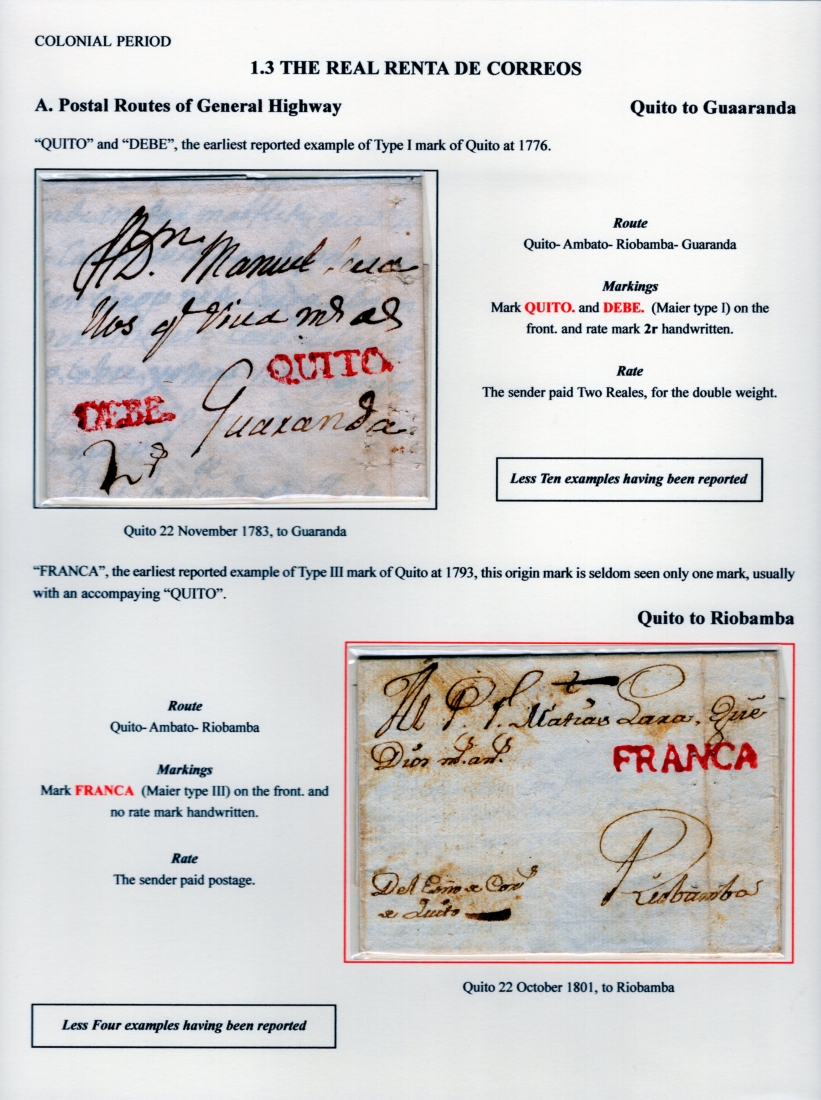 COLONIAL PERIOD
1.3 THE REAL RENTA DE CORREOS
A. Postal Routes of General Highway
Quito to Guaaranda
“QUITO” and “DEBE”, the earliest reported example of Type I mark of Quito at 1776.
A Dn. Manuel
QUITO.
DEBE.
Guaranda
2rs
Route
Quito- Ambato- Riobamba- Guaranda
Markings
Mark QUITO. and DEBE. (Maier type I) on the
front. and rate mark 2r handwritten.
Rate
The sender paid Two Reales, for the double weight.
Less Ten examples having been reported
Quito 22 November 1783, to Guaranda
“FRANCA”, the earliest reported example of Type III mark of Quito at 1793, this origin mark is seldom seen only one mark, usually
with an accompaying “QUITO”.
Quito to Riobamba
Route
Quito- Ambato- Riobamba
Markings
Mark FRANCA (Maier type III) on the front. and
no rate mark handwritten.
Rate
The sender paid postage.
Matias Lara, Que
Dios ms. as.
FRANCA
Riobamba
Del
de Quito
Quito 22 October 1801, to Riobamba
Less Four examples having been reported